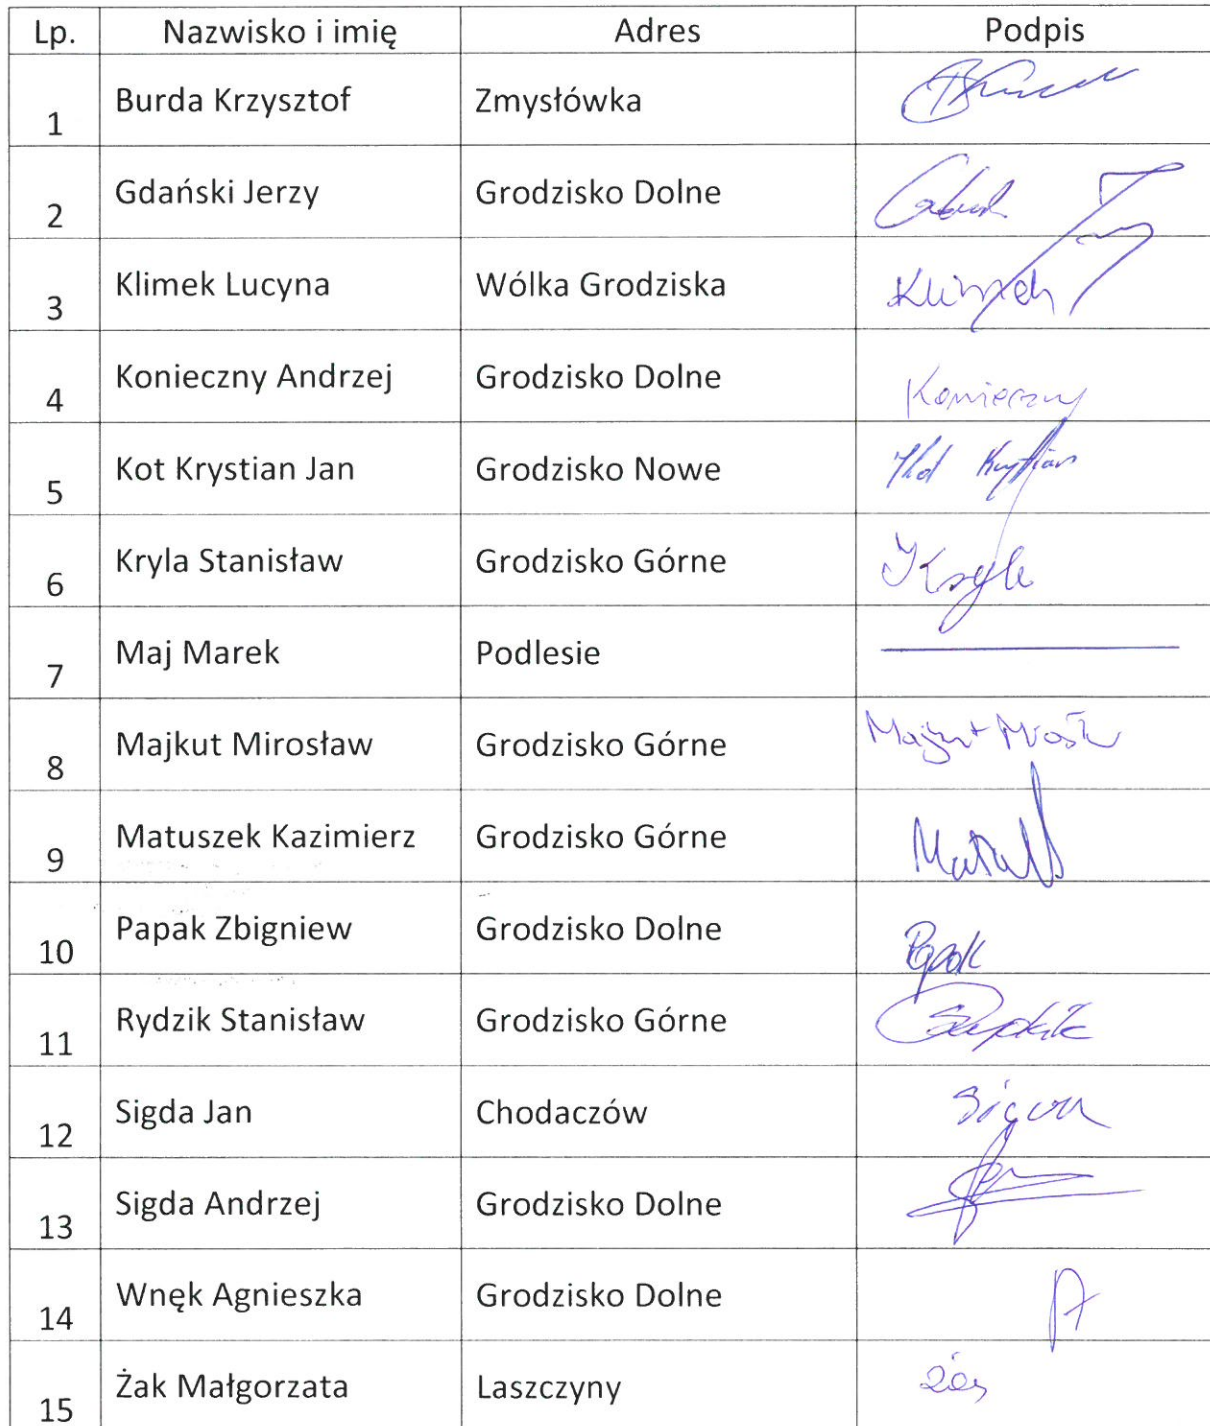 Lp. Nazwisko i imię Adres Podpis
1 Burda Krzysztof Zmysłówka
2 Gdański Jerzy Grodzisko Dolne
3 Klimek Lucyna Wólka Grodziska Klimek
4 Konieczny Andrzej Grodzisko Dolne Konieczny
5 Kot Krystian Jan Grodzisko Nowe Kot Krystian
6 Kryla Stanisław Grodzisko Górne Kryla
7 Maj Marek Podlesie
8 Majkut Mirosław Grodzisko Górne Majkut
9 Matuszek Kazimierz Grodzisko Górne
10 Papak Zbigniew Grodzisko Dolne Papak
11 Rydzik Stanisław Grodzisko Górne
12 Sigda Jan Chodaczów
13 Sigda Andrzej Grodzisko Dolne
14 Wnęk Agnieszka Grodzisko Dolne
15 Żak Małgorzata Laszczyny